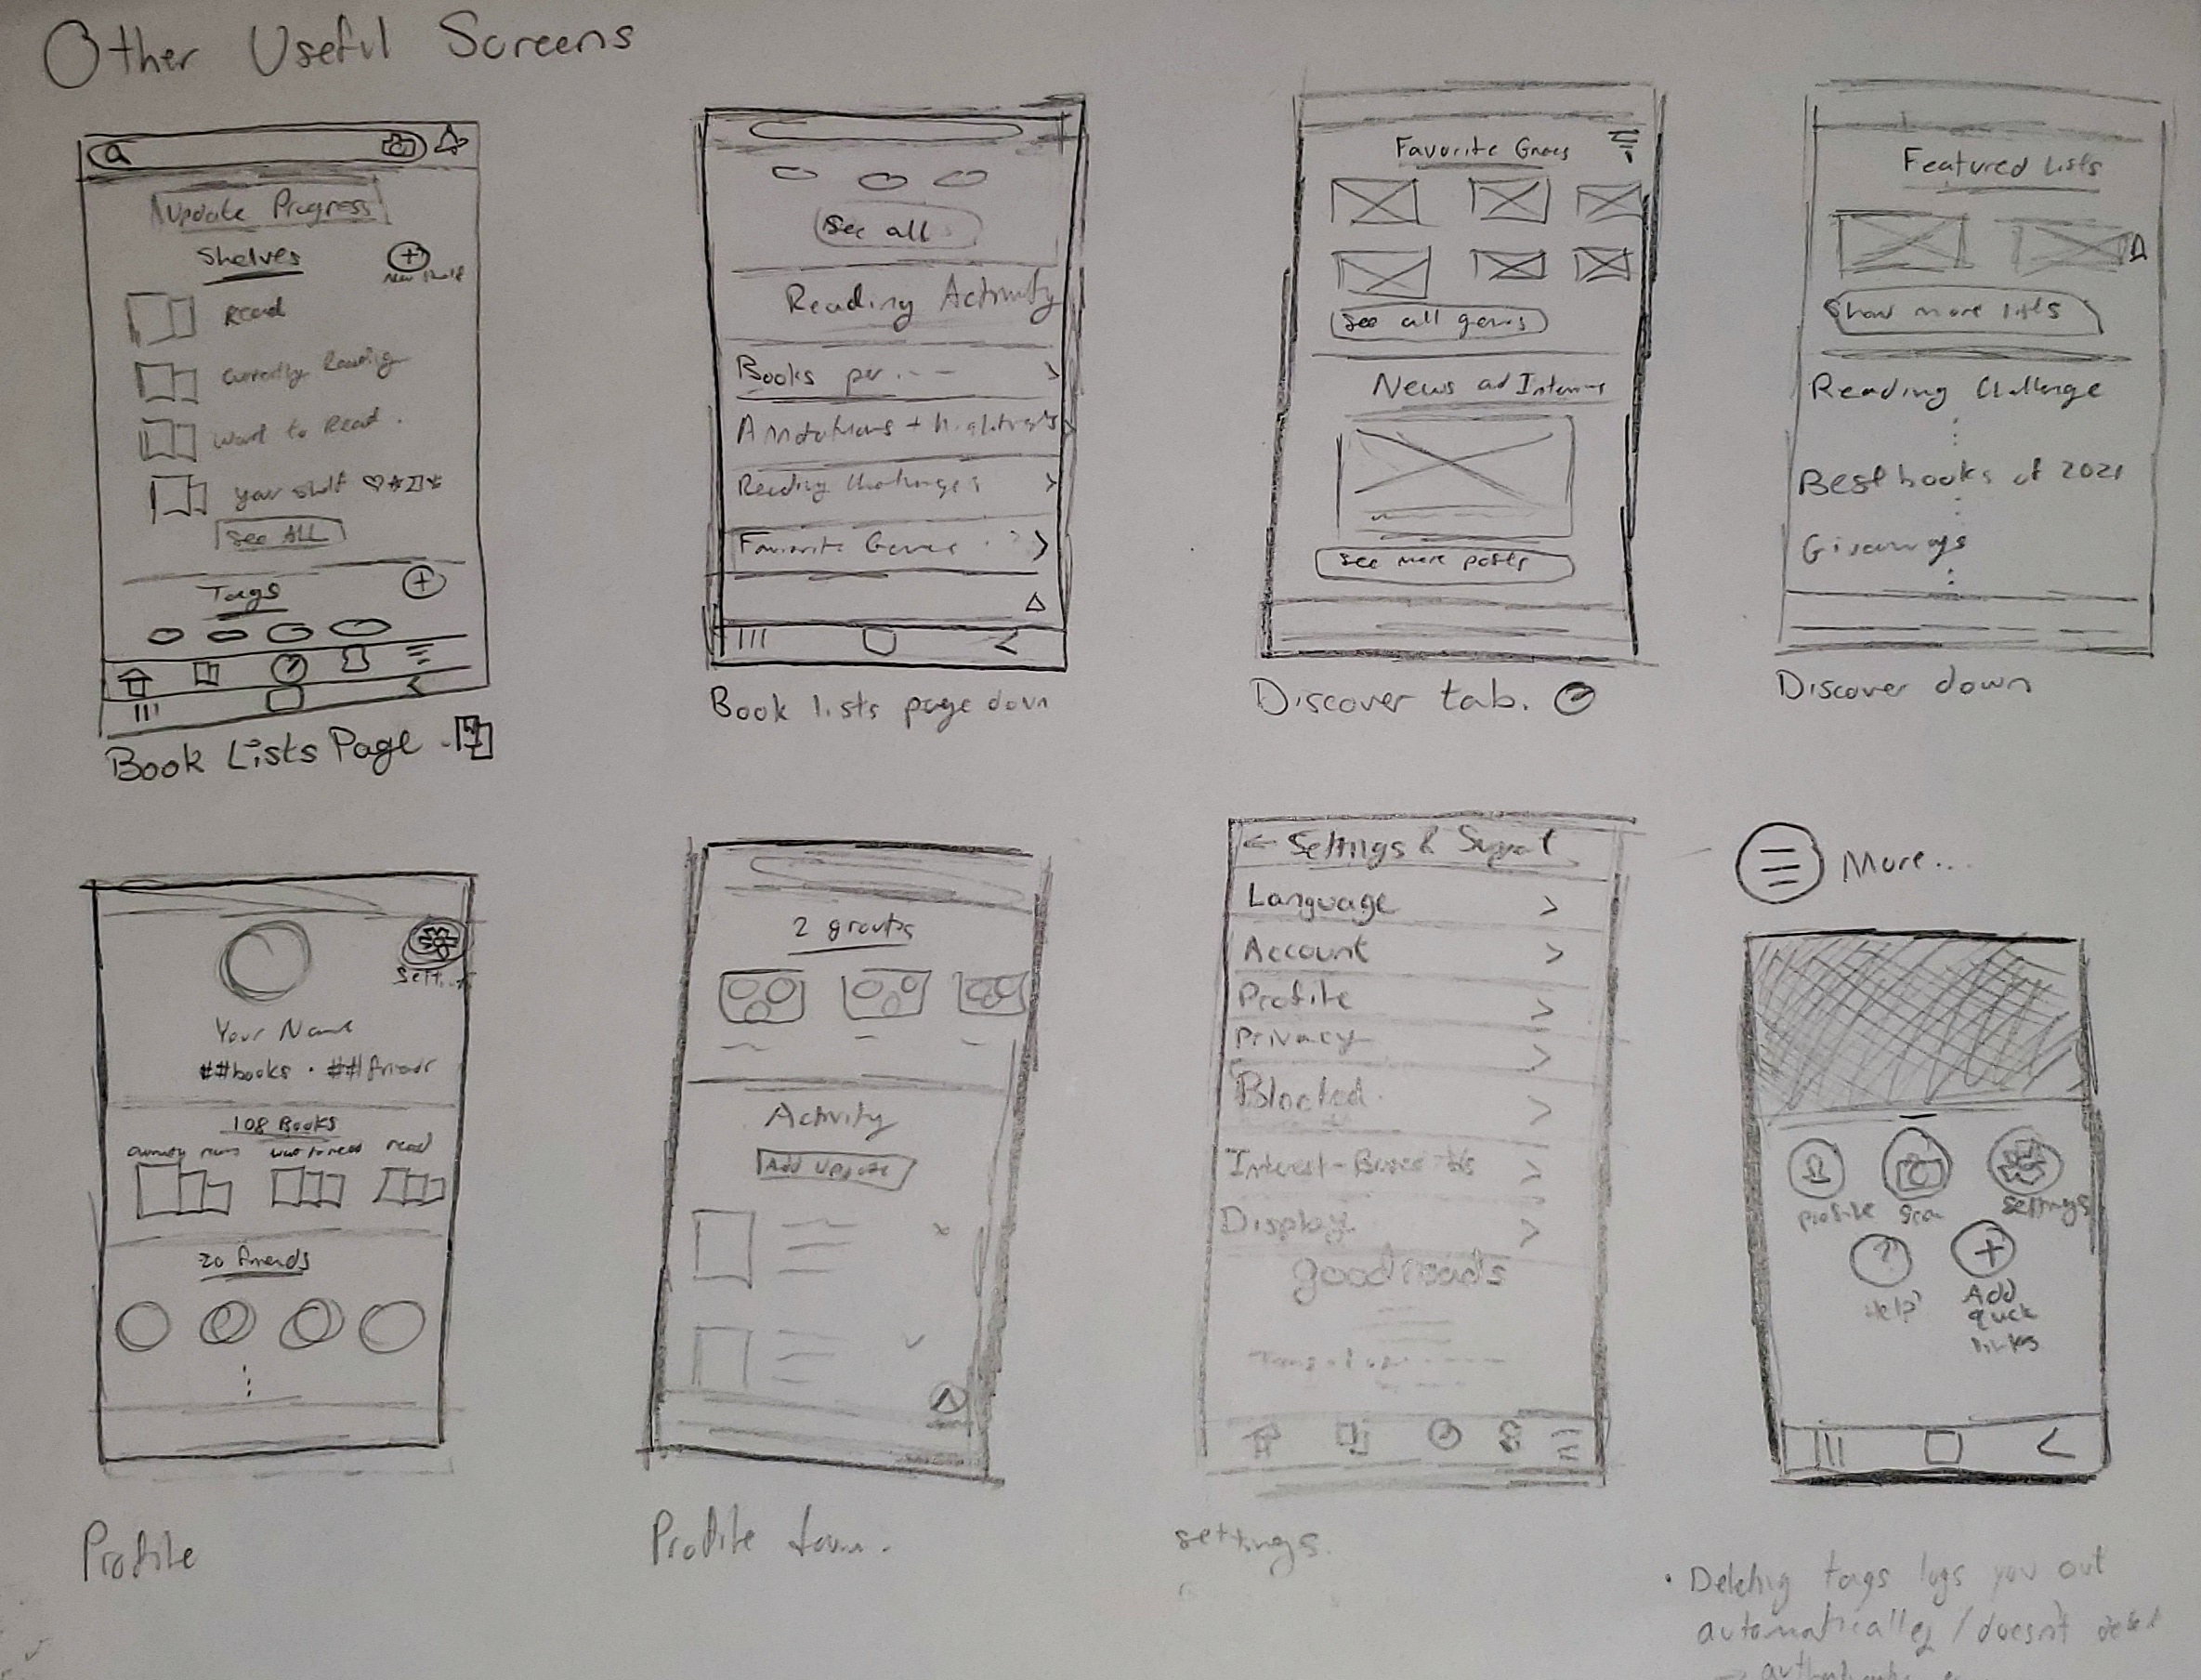 Other Useful Screens
Update Progress
Shelves
New Shelf
Read
Currently Reading
Want to Read.
your shelf
See ALL
Tags
Book Lists Page
See all
Reading Activity
Books per...
Annotations + highlights
Reading Challenges
Favorite Genres
Book lists page down
Favorite Genres
See all genres
News and Interviews
See more posts
Discover tab.
Featured Lists
Show more lists
Reading Challenge
Best books of 2021
Giveaways
Discover down
Sett...
Your Name
##books · ##friends
108 Books
want to read
read
20 friends
Profile
2 groups
Activity
Add Update
Profile down.
← Settings & Support
Language
Account
Profile
Privacy
Blocked
Interest-Based Ads
Display
goodreads
settings.
More...
profile
Scan
settings
Help?
Add
quick
links
• Deleting tags logs you out
automatically / doesn't